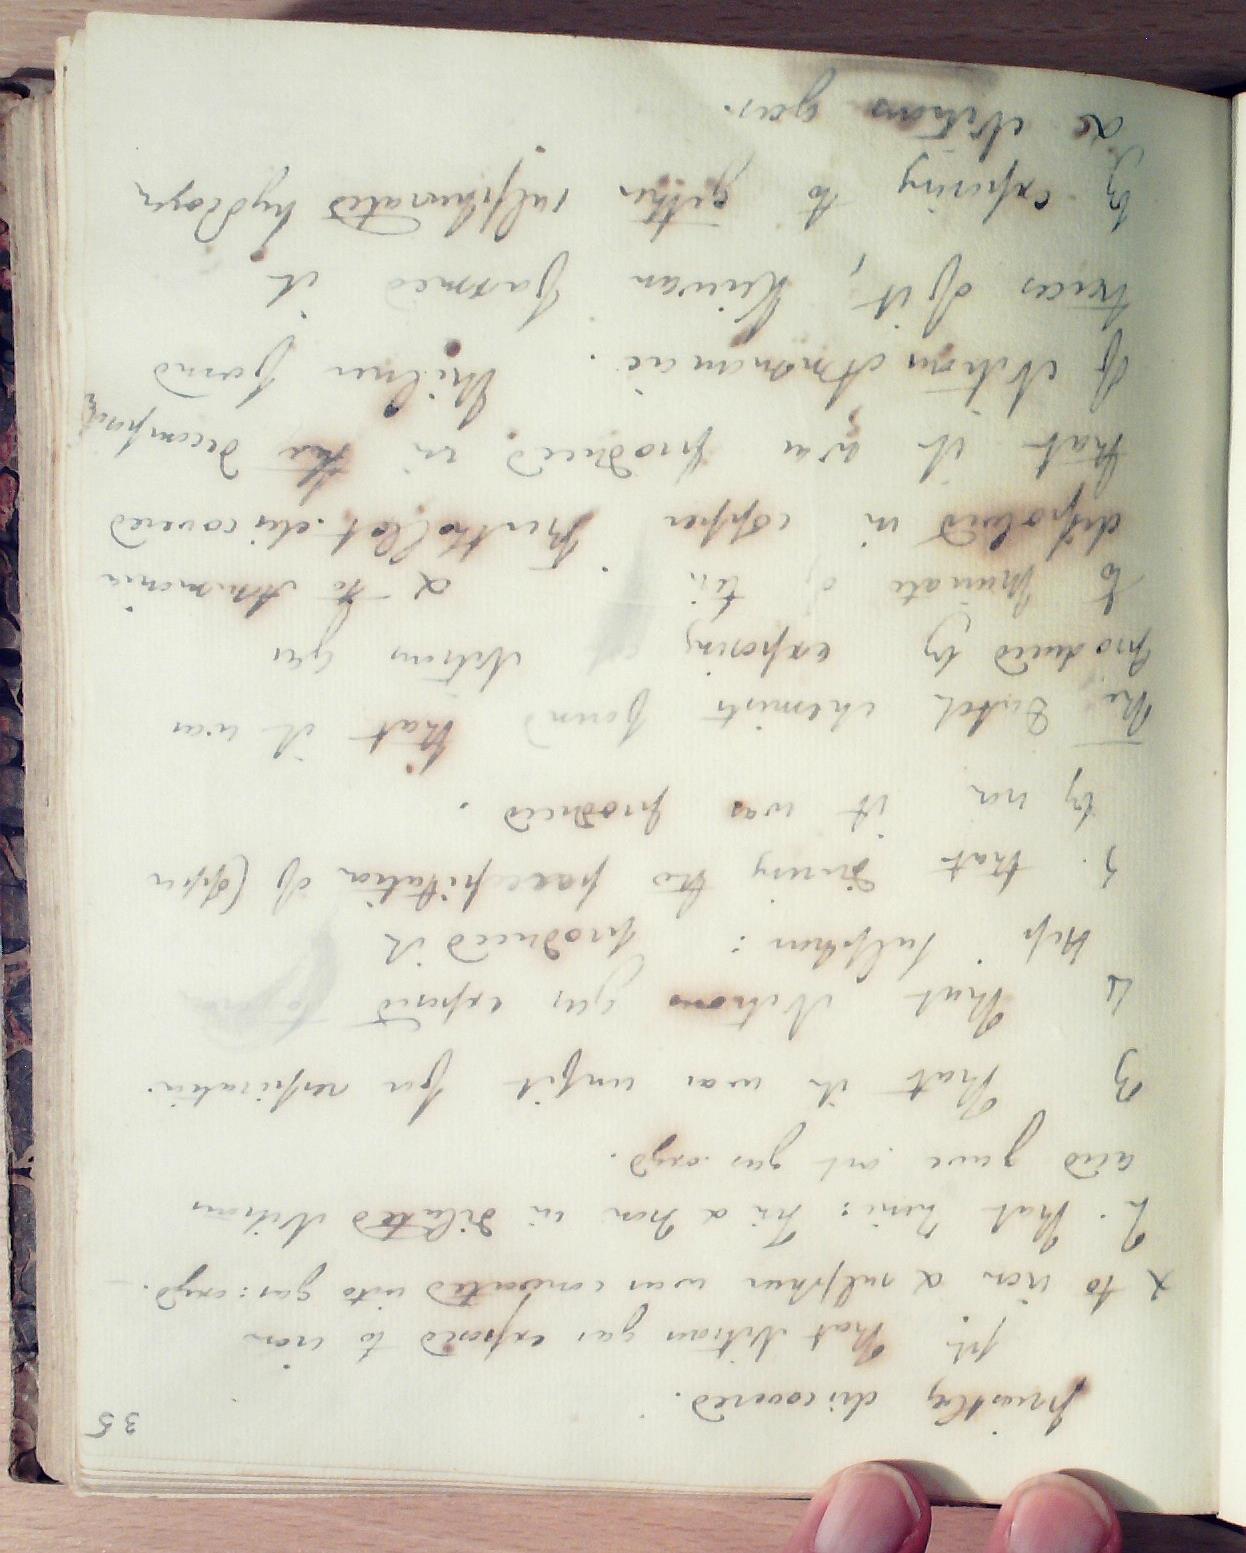 35
priestley discovered.
1st. That Nitrous gas exposed to iron
& to iron & sulphur was converted into gas: oxyd.
2. That Zinc: Tin & Iron in diluted Nitrous
acid gave out gas oxyd.
3 That it was unfit for respiration.
4 That Nitrous gas exposed to
Hep sulphur: produced it
5. that during the precipitation of Copper
by iron it was produced.
The Dutch chemists found that it was
produced by exposing Nitrous gas
to Muriate of tin & to Ammonia
dissolved in copper. Berthollet discovered
that it was produced in the
of Nitrous Ammoniac. Milner found
traces of it, Kirwan formed it
by exposing to gether sulphurated hydrogen
& Nitrous gas.